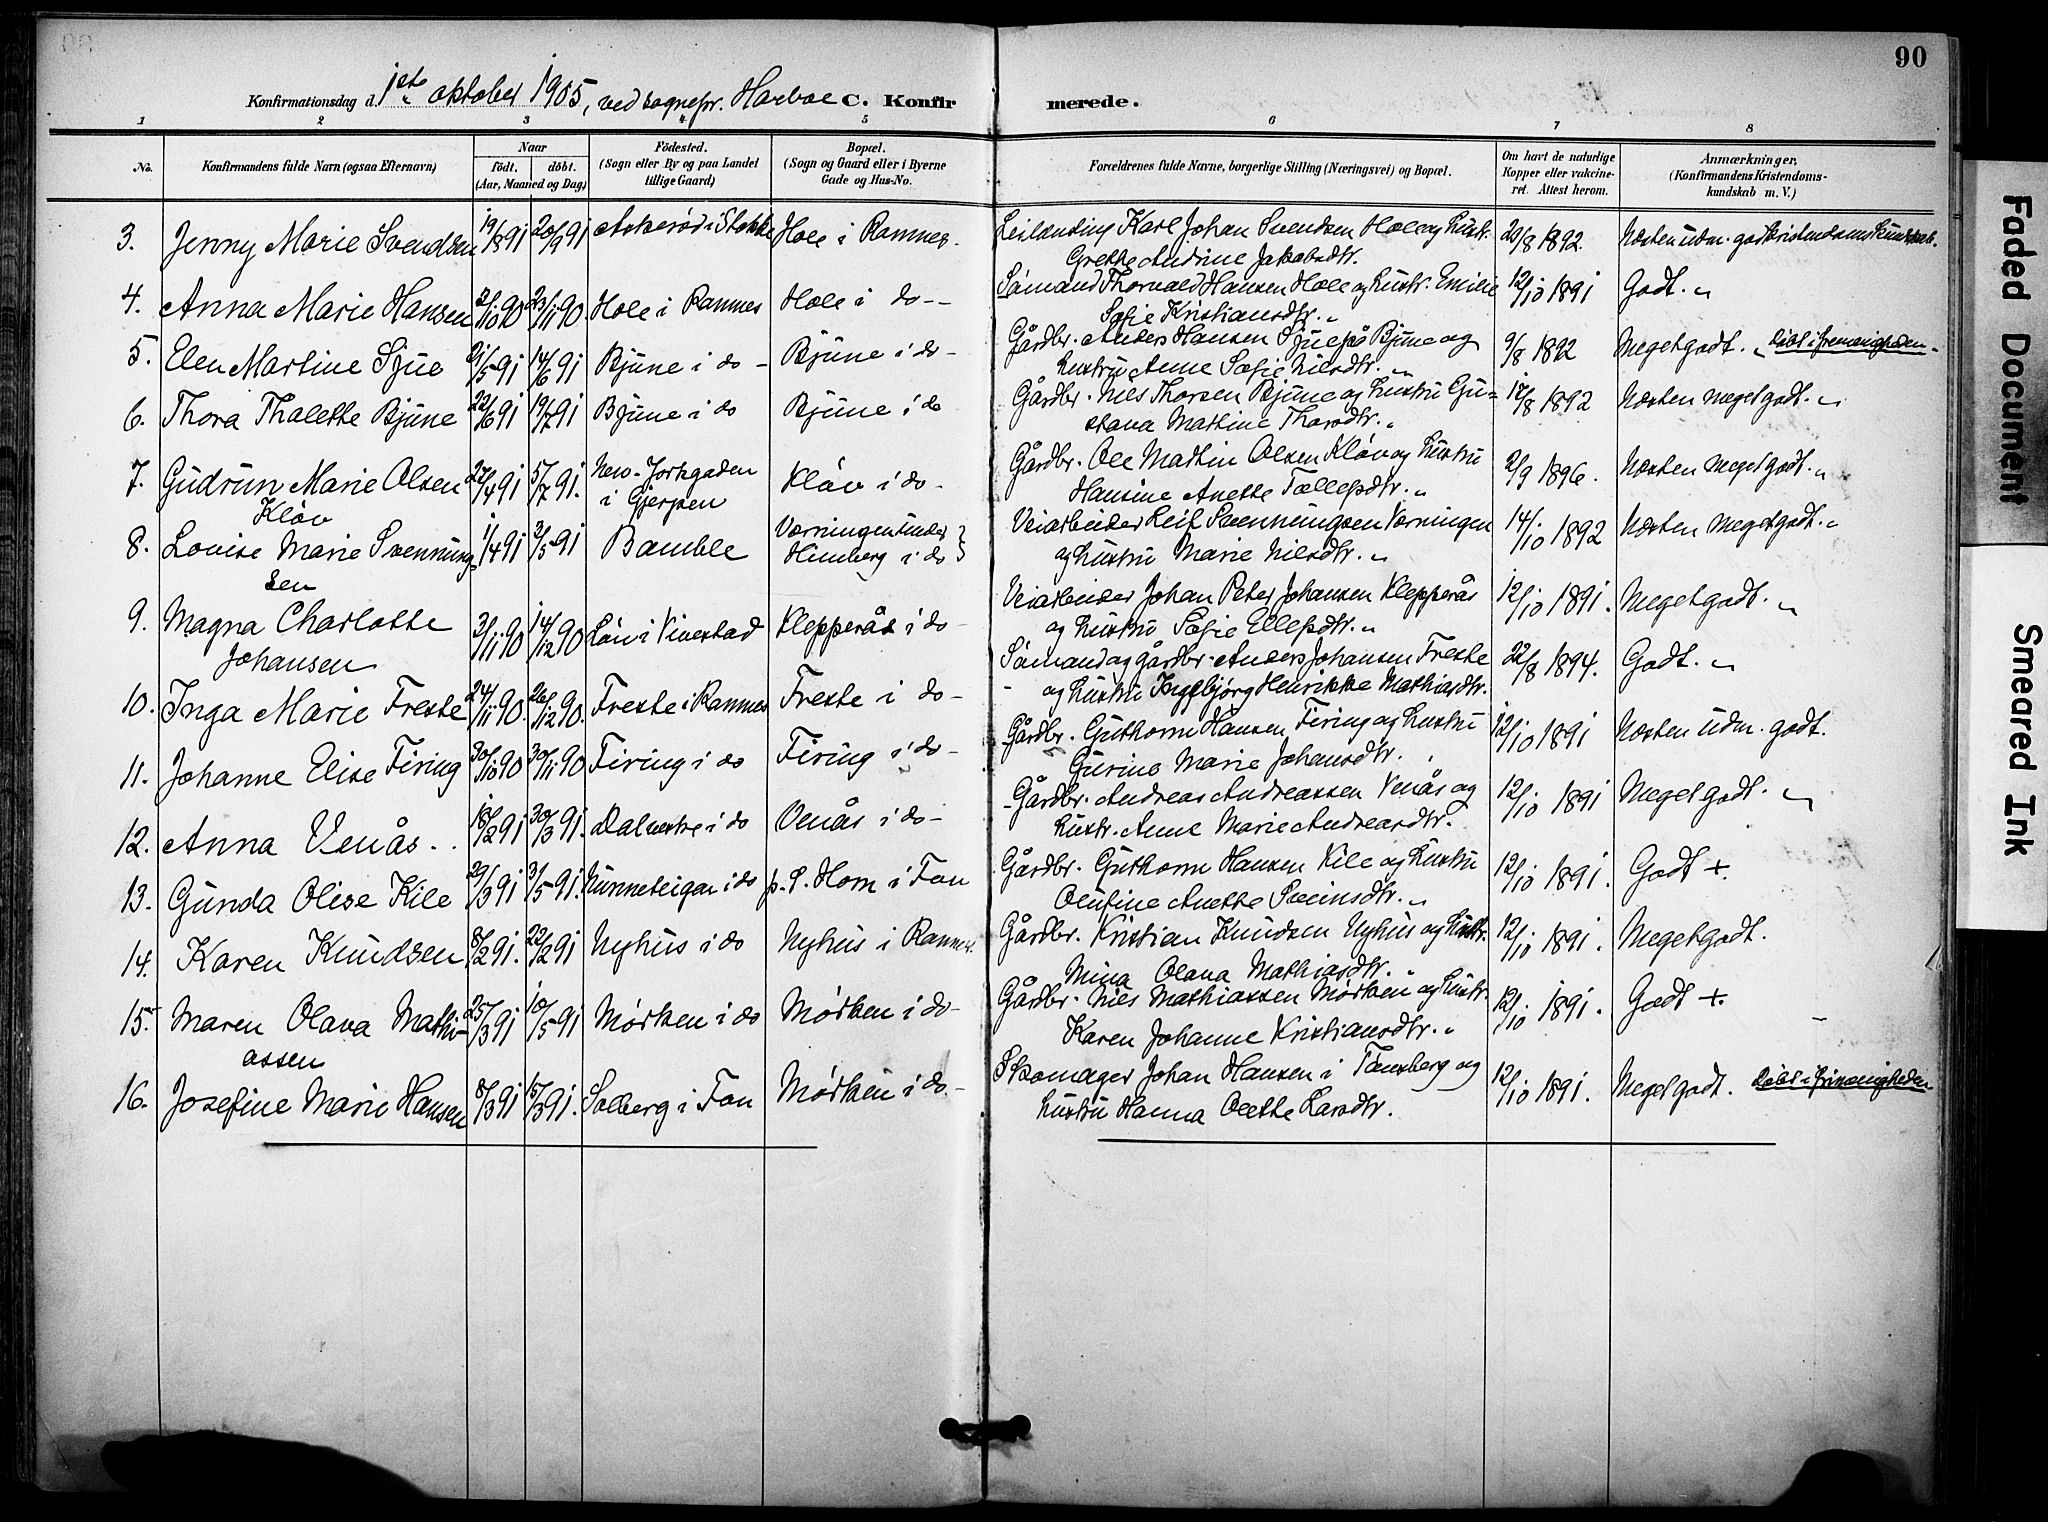 90
Konfirmationsdag d. 1ste oktober 1905, ved sognepr. Harboe C. Konfirmerede.
1 2 3 4 5 6 7 8
No.
Konfirmandens fulde Narn (ogsaa Efternavn)
Naar
Födt. döbt.
(Aar, Maaned og Dag)
Födested.
(Sogn eller By og paa Landet
tillige Gaard)
Bopæl.
(Sogn og Gaard eller i Byerne
Gade og Hus-No.
Forældrenes fulde Navne, borgerlige Stilling (Næringsvei) og Bopæl.
Om havt de naturlige
Kopper eller vakcine-
ret. Attest herom.
Anmærkninger,
(Konfirmandens Kristendoms-
kundskab m. V.)
3. Jenny Marie Svendsen 19/8 91 20/9 91 Askerød i Stokke Hole i Ramnes. Leilending Karl Johan Svendsen Hole og hustr. 20/8 1892. Næsten udm. god kristendomskundskab.
Grethe Andrine Jakobsdtr.
4. Anna Marie Hansen 2/10 90 23/11 90 Hole i Ramnes Hole i do - Sömand Thorvald Hansen Hole og hustr. Emilie 12/10 1891 Godt. "
Sofie Kristiansdtr. "
5. Elen Martine Sjue 21/5 91 14/6 91 Bjune i do - Bjune i do - Gårdbr. Anders Hansen Sjue på Bjune og 9/8 1892 Meget godt. "
hustru Anne Sofie Nilsdtr. "
6. Thora Thalette Bjune 22/6 91 19/7 91 Bjune i do Bjune i do Gårdbr. Nils Thorsen Bjune og hustru Gu- 17/8 1892 Næsten meget godt. "
stava Mathine Thorsdtr. "
7. Gudrun Marie Olsen 27/4 91 5/7 91. New-Jorkgaden Kløv i do - Gårdbr. Ole Martin Olsen Kløv og hustru 2/9 1896. Næsten meget godt. "
Kløv i Gjerpen Hansine Anette Tollefsdtr. "
8. Louise Marie Svennung- 1/4 91 3/5 91 Bamble Værningen under Veiarbeider Leif Svenningsen Værningen 14/10 1892 Næsten meget godt. "
sen Himberg i do og hustru Marie Nilsdtr. "
9. Magna Charlotte 3/11 90 14/12 90 Løn i Vivestad Klepperås i do - Veiarbeider Johan Peter Johansen Klepperås 12/10 1891. Meget godt. "
Johansen og hustru Sofie Ellefsdtr. "
10. Inga Marie Freste 24/11 90. 26/12 90. Freste i Ramnes Freste i do - Sömand og gårdbr. Anders Johansen Freste 22/8 1894. Godt. "
og hustru Ingebjørg Henrikke Mathiasdtr.
11. Johanne Elise Firing 30/10 90 30/11 90 Firing i do Firing i do - Gårdbr. Guthorm Hansen Firing og hustru 12/10 1891 Næsten udm. godt.
Gurine Marie Johansdtr.
12. Anna Venås. 18/2 91 30/3 91. Dalvestre i do Venås i do - Gårdbr. Andreas Andreassen Venås og 12/10 1891 Meget godt. "
hustr. Anne Marie Andreasdtr.
13. Gunda Olise Kile 29/3 91 31/5 91. Nunneteigen i do p. t. Horn i Fon Gårdbr. Guthorm Hansen Kile og hustru 12/10 1891. Godt +.
Olufine Anette Sveinsdtr. "
14. Karen Knudsen 8/2 91. 22/2 91 Nyhus i do Nyhus i Ramnes. Gårdbr. Kristian Knudsen Nyhus og hustr. 12/10 1891. Meget godt.
Mina Olava Mathiasdtr. "
15. Maren Olava Mathi- 25/3 91 10/5 91 Mørken i do Mørken i do - Gårdbr. Nils Mathiassen Mørken og hustr. 12/10 1891. Godt +.
assen Karen Johanne Kristiansdtr. "
16. Josefine Marie Hansen 8/3 91 15/3 91. Solberg i Fon Mørken i do - Skomager Johan Hansen i Tønsberg og 12/10 1891. Meget godt. Døbt i frimenigheden.
hustru Hanna Olette Larsdtr.
Faded Document
Smeared Ink